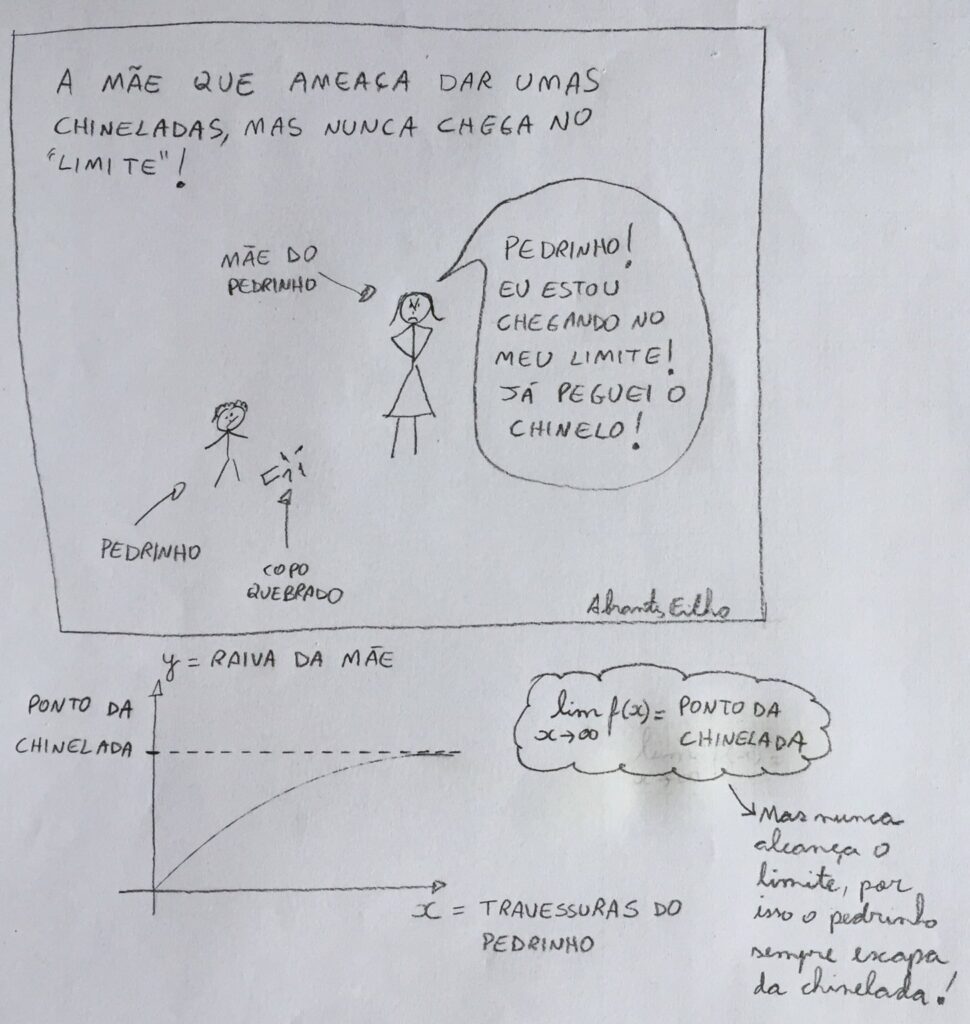 A MÃE QUE AMEAÇA DAR UMAS
CHINELADAS, MAS NUNCA CHEGA NO
"LIMITE"!
MÃE DO
PEDRINHO
PEDRINHO!
EU ESTOU
CHEGANDO NO
MEU LIMITE!
JÁ PEGUEI O
CHINELO!
PEDRINHO
COPO
QUEBRADO
Abrantes Filho
y = RAIVA DA MÃE
PONTO DA
CHINELADA
lim f(x) = PONTO DA
x→∞ CHINELADA
Mas nunca
alcança o
limite, por
isso o pedrinho
sempre escapa
da chinelada!
x = TRAVESSURAS DO
PEDRINHO